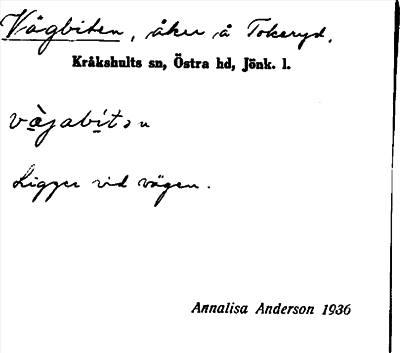 Vägbiten, åker å Tokeryd.
Kråkshults sn, Östra hd, Jönk. l.
vàgabítən
Ligger vid vägen.
Annalisa Anderson 1936